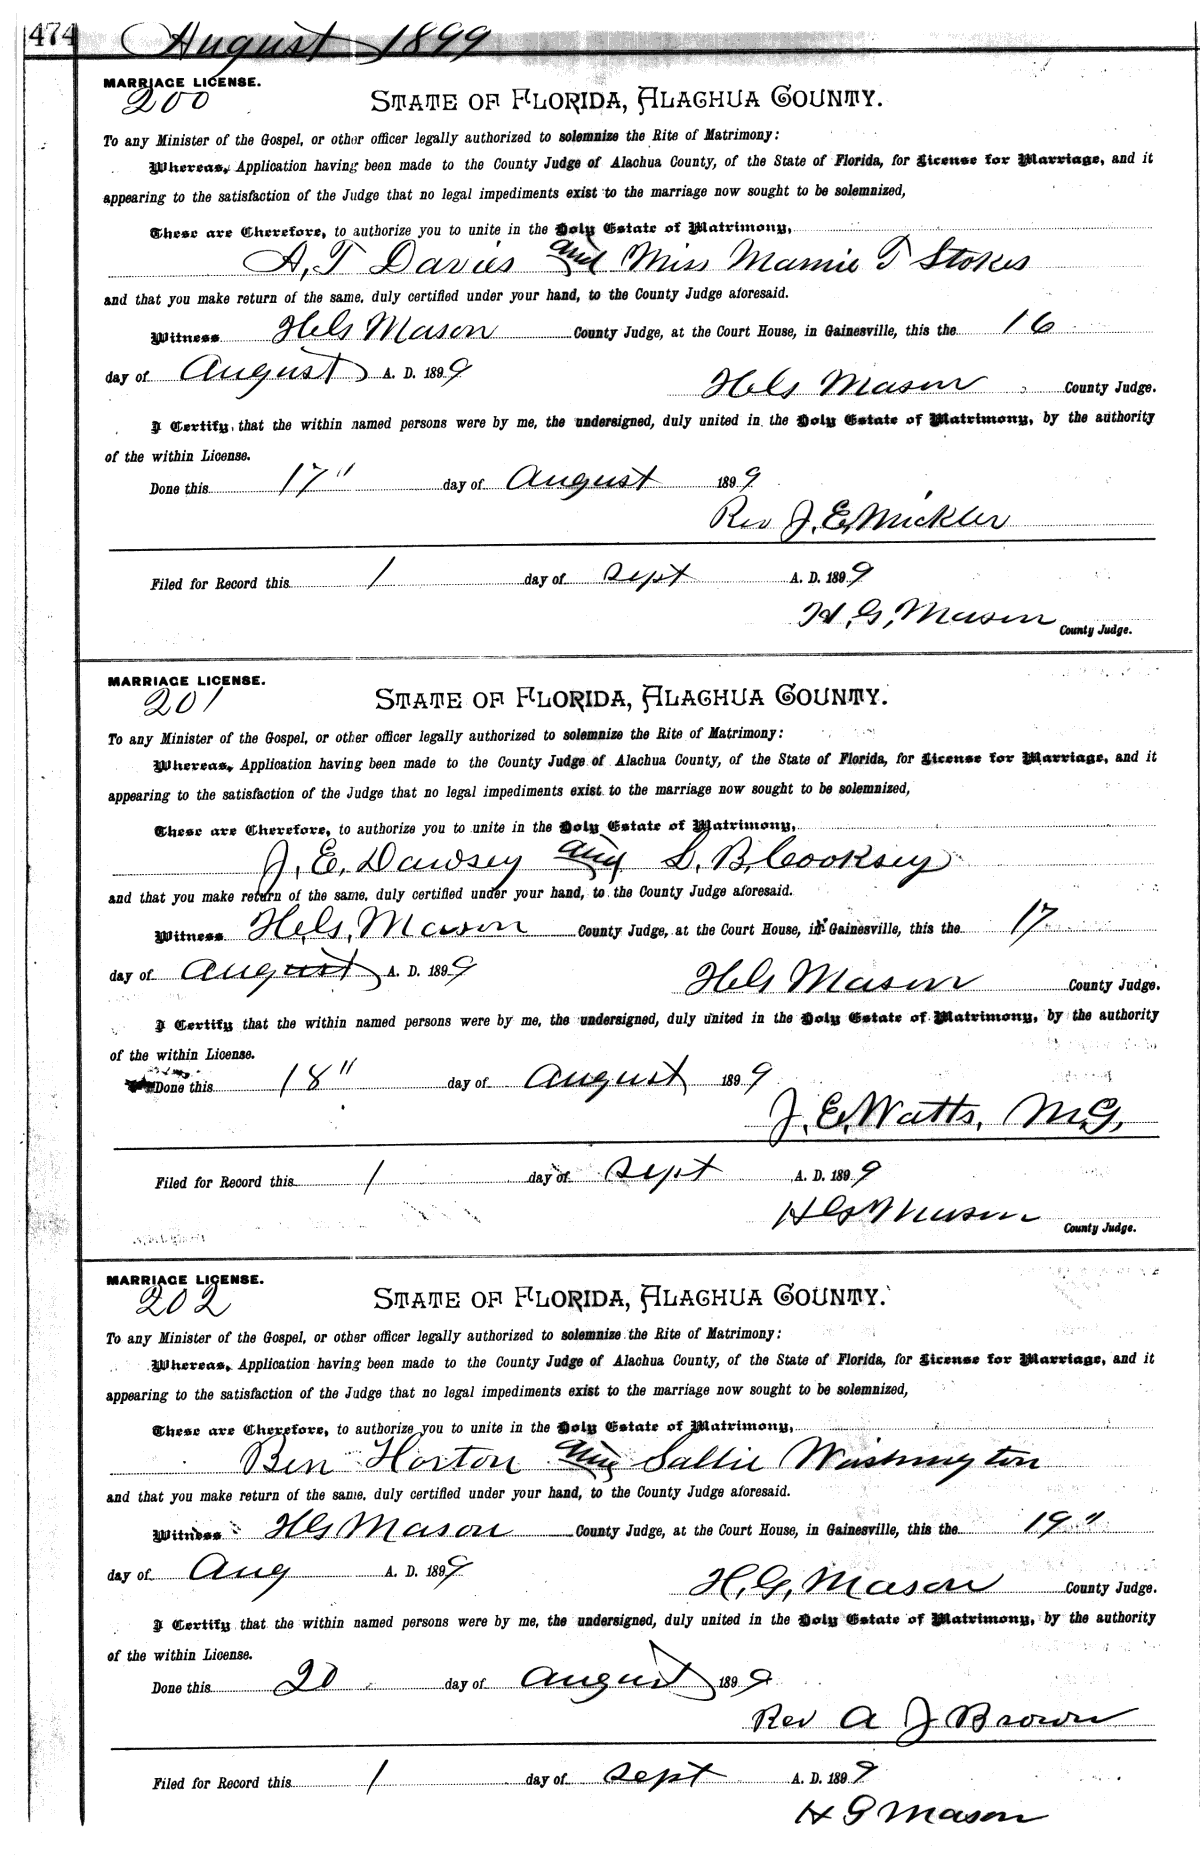 474 August 1899
MARRIAGE LICENSE.
200
STATE OF FLORIDA, ALACHUA COUNTY.
To any Minister of the Gospel, or other officer legally authorized to solemnize the Rite of Matrimony:
Whereas, Application having been made to the County Judge of Alachua County, of the State of Florida, for License for Marriage, and it
appearing to the satisfaction of the Judge that no legal impediments exist to the marriage now sought to be solemnized,
These are Therefore, to authorize you to unite in the Holy Estate of Matrimony,
A, T Davies and Miss Mamie T Stokes
and that you make return of the same, duly certified under your hand, to the County Judge aforesaid.
Witness H G Mason County Judge, at the Court House, in Gainesville, this the 16
day of August A. D. 1899
H G Mason County Judge.
I Certify, that the within named persons were by me, the undersigned, duly united in the Holy Estate of Matrimony, by the authority
of the within License.
Done this 17" day of August 1899
Rev J. E. Mickler
Filed for Record this 1 day of Sept A. D. 1899
H, G, Mason
County Judge.
MARRIAGE LICENSE.
201
STATE OF FLORIDA, ALACHUA COUNTY.
To any Minister of the Gospel, or other officer legally authorized to solemnize the Rite of Matrimony:
Whereas, Application having been made to the County Judge of Alachua County, of the State of Florida, for License for Marriage, and it
appearing to the satisfaction of the Judge that no legal impediments exist to the marriage now sought to be solemnized,
These are Therefore, to authorize you to unite in the Holy Estate of Matrimony,
J, E, Dawsey and L. B. Cooksey
and that you make return of the same, duly certified under your hand, to the County Judge aforesaid.
Witness H, G, Mason County Judge, at the Court House, in Gainesville, this the 17
day of August A. D. 1899
H G Mason County Judge.
I Certify that the within named persons were by me, the undersigned, duly united in the Holy Estate of Matrimony, by the authority
of the within License.
Done this 18" day of August 1899
J. E. Watts, M.G.
Filed for Record this 1 day of Sept A. D. 1899
H G Mason
County Judge.
MARRIAGE LICENSE.
202
STATE OF FLORIDA, ALACHUA COUNTY.
To any Minister of the Gospel, or other officer legally authorized to solemnize the Rite of Matrimony:
Whereas, Application having been made to the County Judge of Alachua County, of the State of Florida, for License for Marriage, and it
appearing to the satisfaction of the Judge that no legal impediments exist to the marriage now sought to be solemnized,
These are Therefore, to authorize you to unite in the Holy Estate of Matrimony,
Ben Horton and Sallie Washington
and that you make return of the same, duly certified under your hand, to the County Judge aforesaid.
Witness H G Mason County Judge, at the Court House, in Gainesville, this the 19"
day of Aug A. D. 1899
H, G, Mason County Judge.
I Certify that the within named persons were by me, the undersigned, duly united in the Holy Estate of Matrimony, by the authority
of the within License.
Done this 20 day of August 1899
Rev A J Brown
Filed for Record this 1 day of Sept A. D. 1899
H G Mason